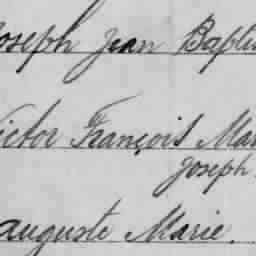 Joseph Jean Baptis
Victor François Mar
Joseph
Auguste Marie.